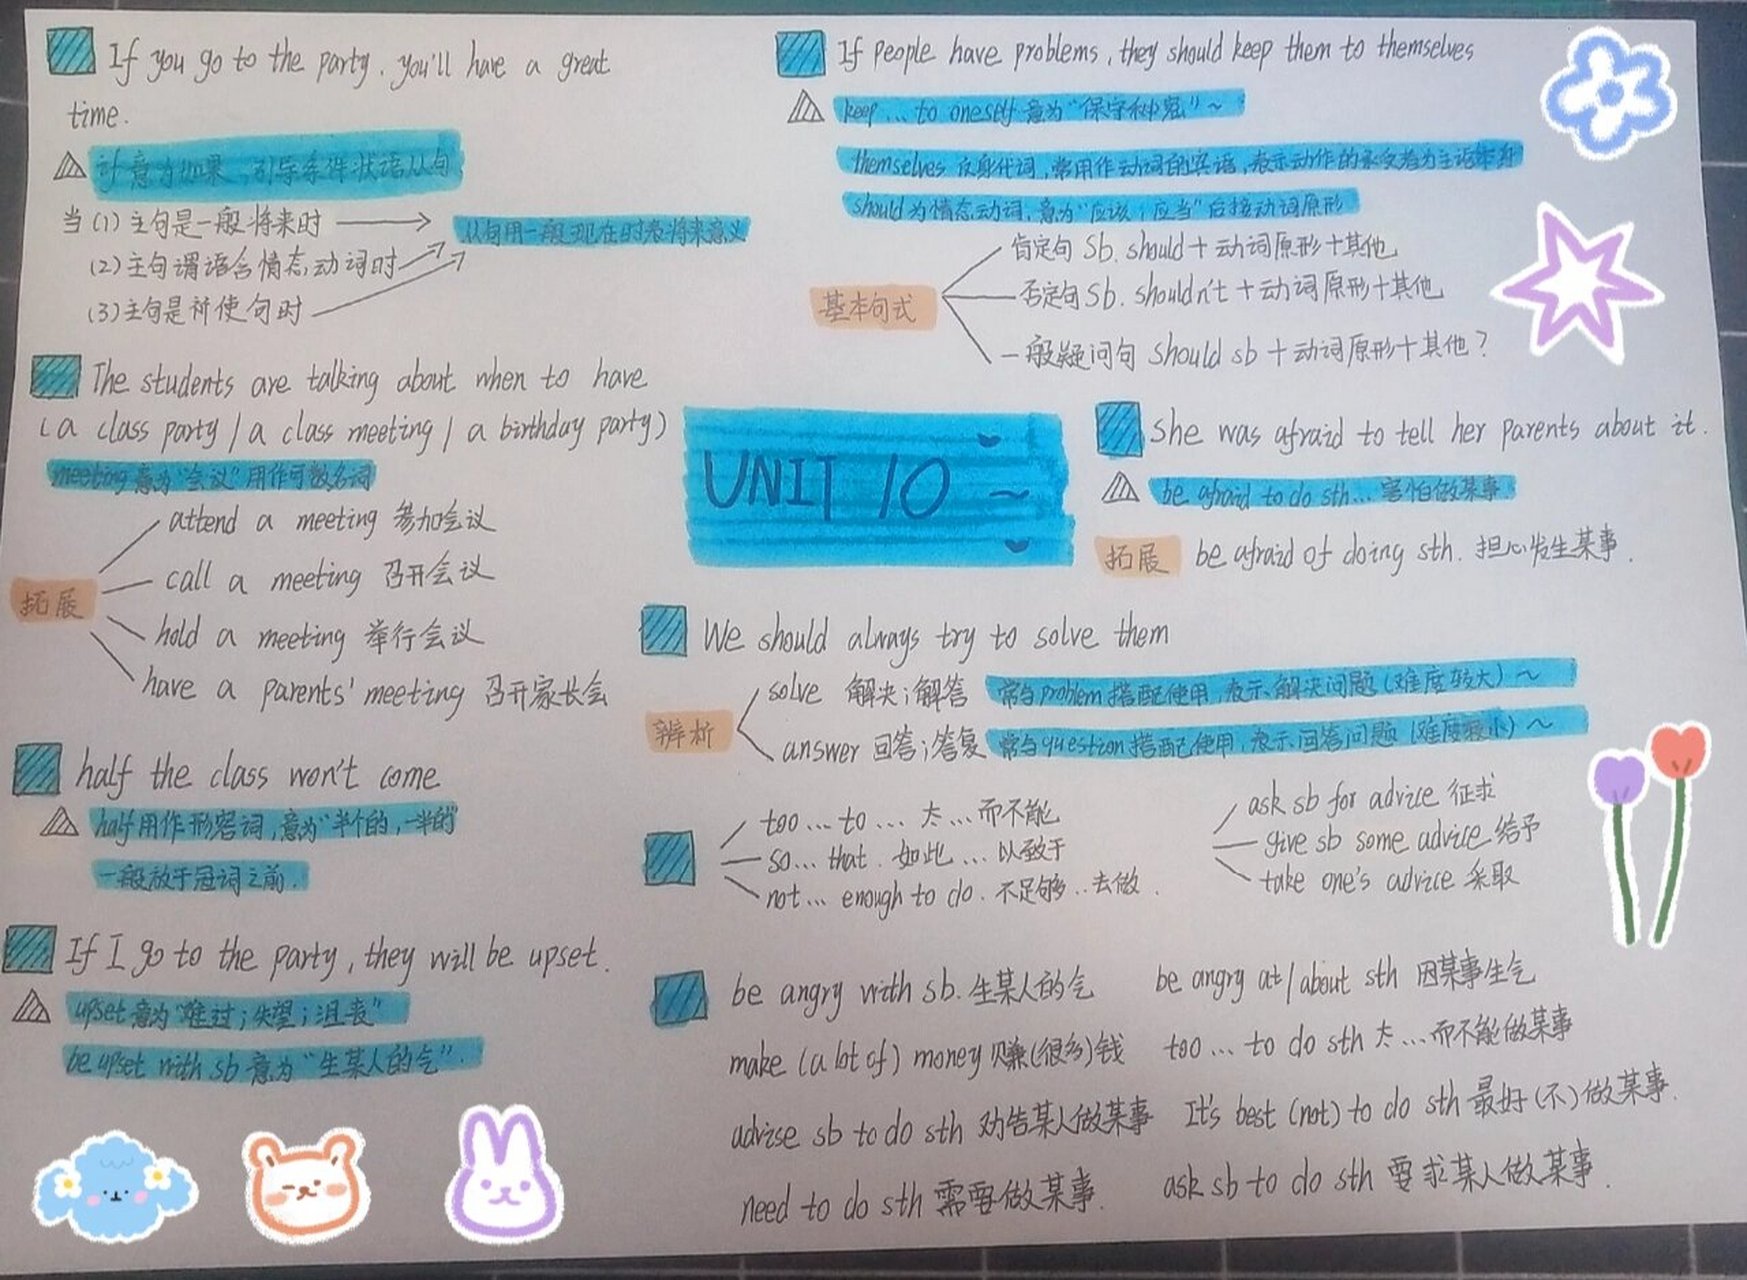 If you go to the party, you'll have a great
time.
if 意为如果,引导条件状语从句
当(1)主句是一般将来时
从句用一般现在时表将来意义
(2)主句谓语含情态动词时
(3)主句是祈使句时
The students are talking about when to have
(a class party / a class meeting / a birthday party)
meeting 意为“会议”用作可数名词
拓展
attend a meeting 参加会议
call a meeting 召开会议
hold a meeting 举行会议
have a parents' meeting 召开家长会
half the class won't come
half 用作形容词,意为“半个的,一半的”
一般放于冠词之前.
If I go to the party, they will be upset.
upset 意为“难过;失望;沮丧”
be upset with sb 意为“生某人的气”.
If people have problems, they should keep them to themselves
keep... to oneself 意为“保守秘密”~
themselves 反身代词,常用作动词的宾语,表示动作的承受者为主语本身
should 为情态动词,意为“应该;应当”后接动词原形
基本句式
肯定句 Sb. should + 动词原形 + 其他
否定句 Sb. shouldn't + 动词原形 + 其他
一般疑问句 Should sb + 动词原形 + 其他?
UNIT 10 ~
She was afraid to tell her parents about it.
be afraid to do sth... 害怕做某事.
拓展 be afraid of doing sth. 担心发生某事.
We should always try to solve them
辨析
solve 解决;解答 常与 problem 搭配使用,表示解决问题(难度较大)~
answer 回答;答复 常与 question 搭配使用,表示回答问题(难度最小)~
too... to ... 太...而不能
so... that. 如此...以致于
not... enough to do. 不足够..去做.
ask sb for advice 征求
give sb some advice 给予
take one's advice 采取
be angry with sb. 生某人的气 be angry at/about sth 因某事生气
make (a lot of) money 赚(很多)钱 too... to do sth 太...而不能做某事
advise sb to do sth 劝告某人做某事 It's best (not) to do sth 最好(不)做某事.
need to do sth 需要做某事. ask sb to do sth 要求某人做某事.